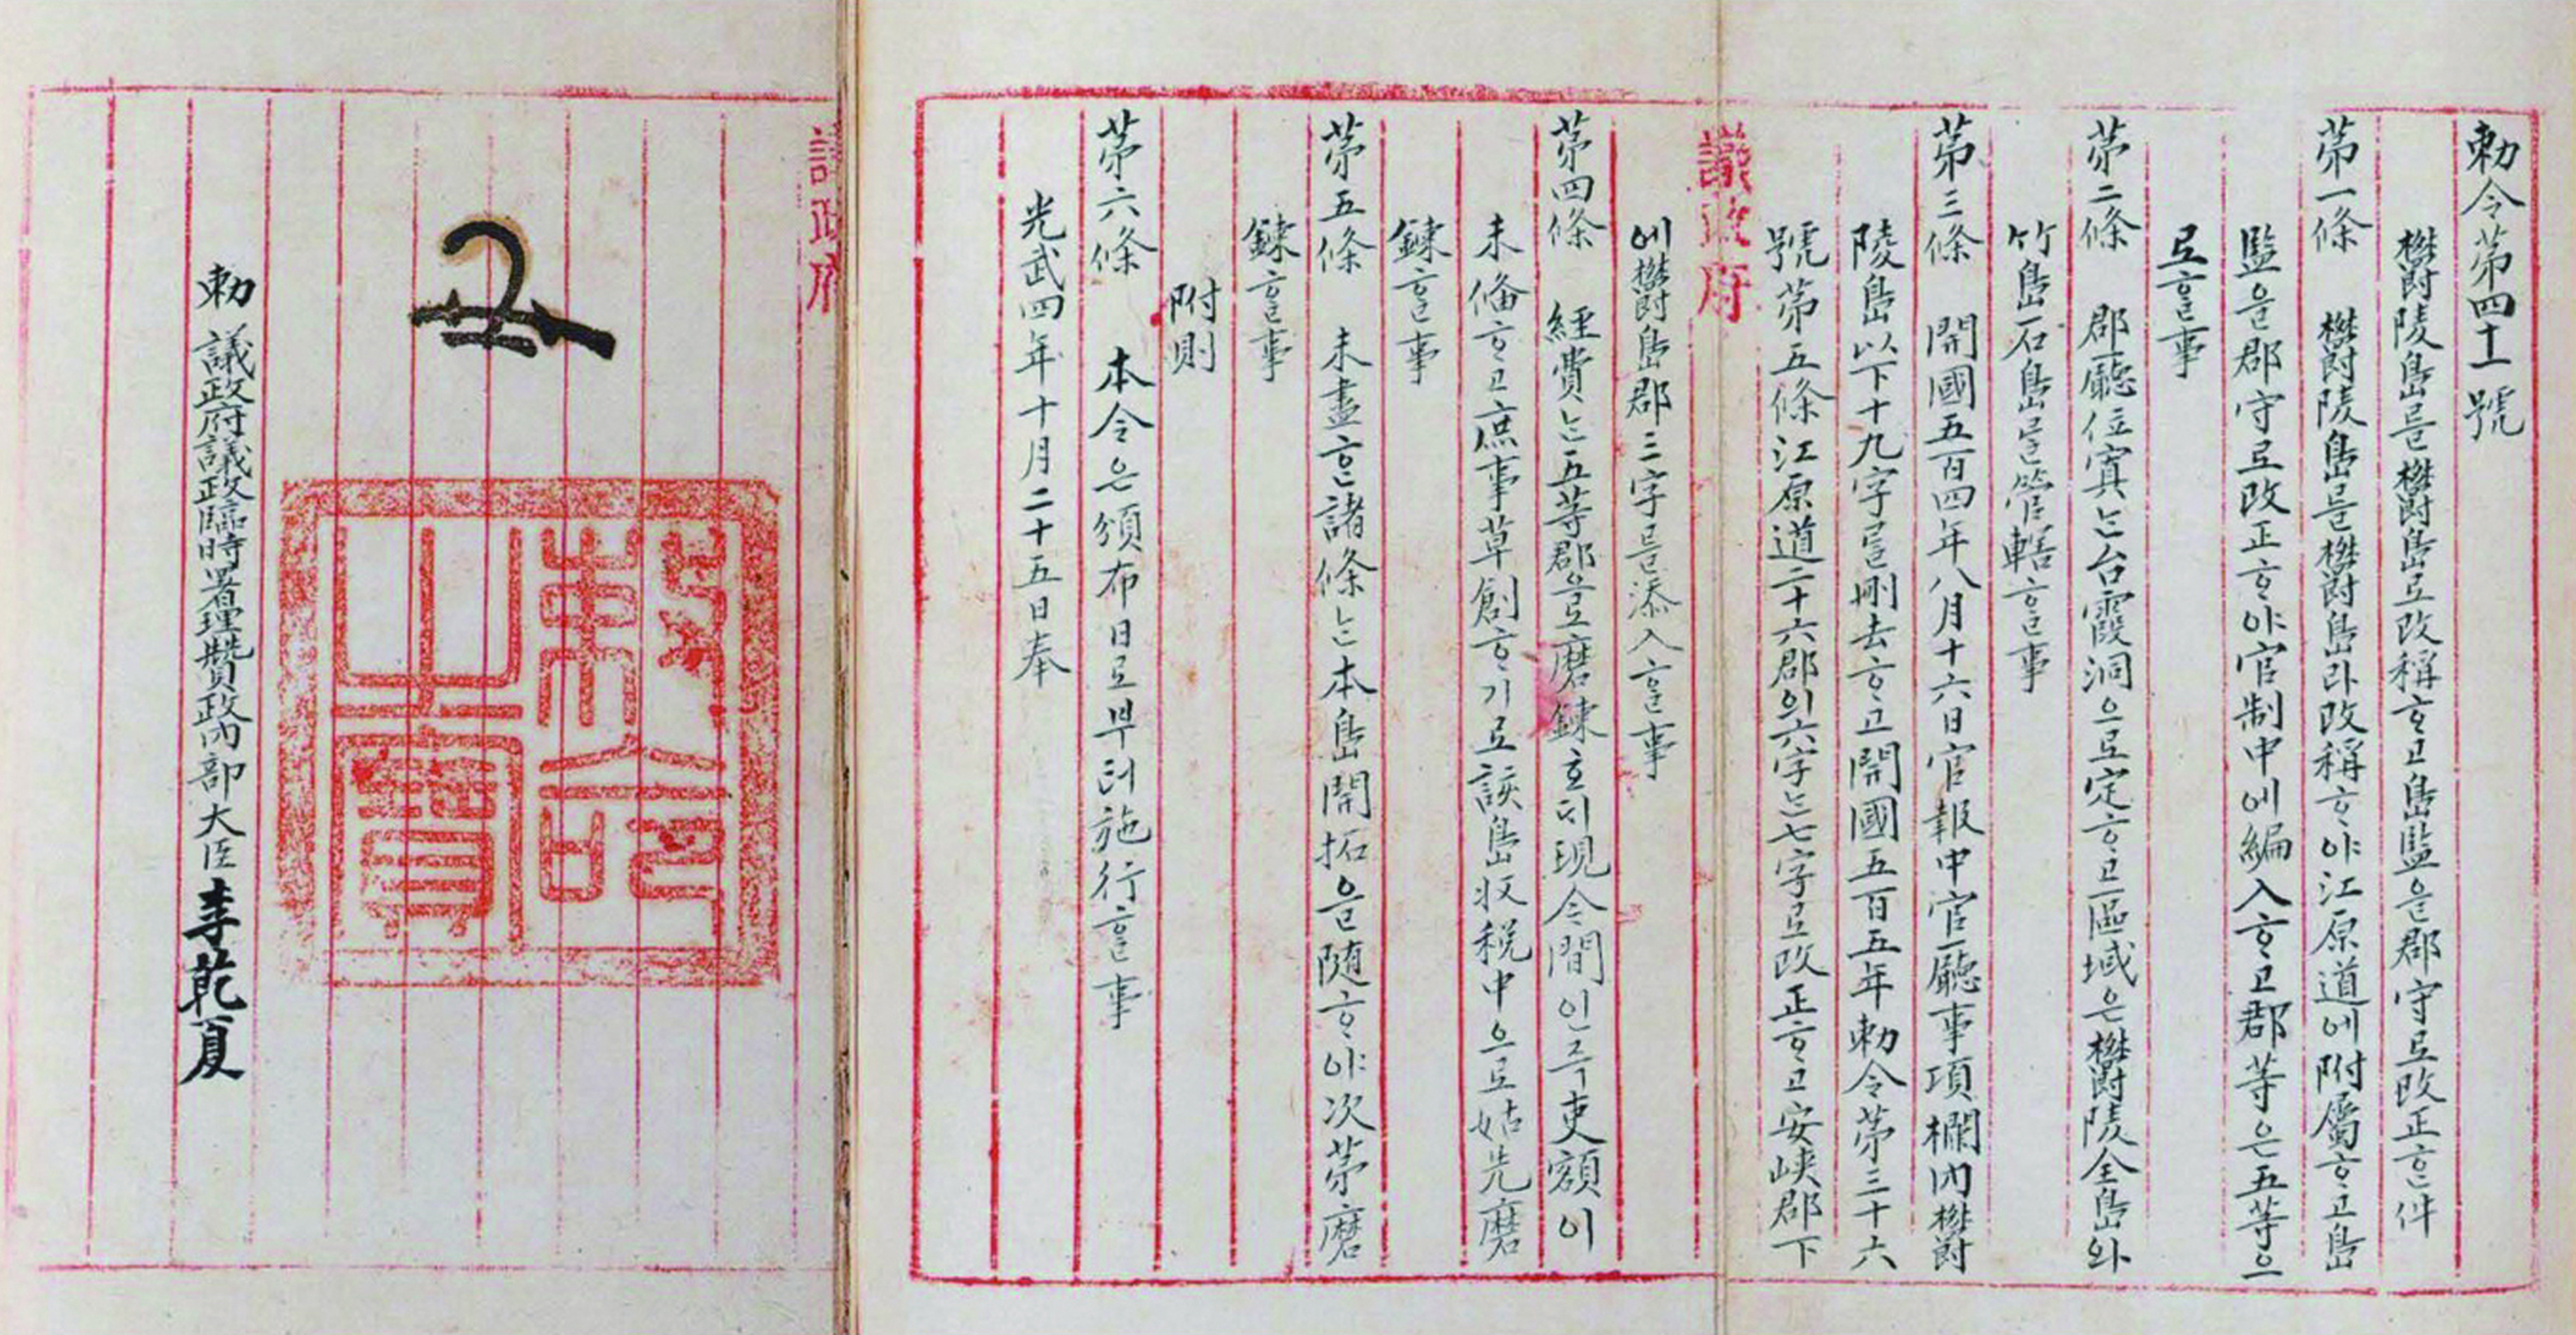 勅令第四十一號
欝陵島를欝島로改稱ᄒᆞ고島監을郡守로改正ᄒᆞᆫ件
第一條 欝陵島를欝島라改稱ᄒᆞ야江原道에附屬ᄒᆞ고島
監을郡守로改正ᄒᆞ야官制中에編入ᄒᆞ고郡等은五等으
로ᄒᆞᆯ事
第二條 郡廳位寘ᄂᆞᆫ台霞洞으로定ᄒᆞ고區域은欝陵全島와
竹島石島ᄅᆞᆯ管轄ᄒᆞᆯ事
第三條 開國五百四年八月十六日官報中官廳事項欄內欝
陵島以下十九字ᄅᆞᆯ刪去ᄒᆞ고開國五百五年勅令第三十六
號第五條江原道二十六郡의六字ᄂᆞᆫ七字로改正ᄒᆞ고安峽郡下
議政府
에欝島郡三字ᄅᆞᆯ添入ᄒᆞᆯ事
第四條 經費ᄂᆞᆫ五等郡으로磨鍊호ᄃᆡ現今間인즉吏額이
未備ᄒᆞ고庶事草創ᄒᆞ기로該島收稅中으로姑先磨
鍊ᄒᆞᆯ事
第五條 未盡ᄒᆞᆫ諸條ᄂᆞᆫ本島開拓을隨ᄒᆞ야次第磨
鍊ᄒᆞᆯ事
附則
第六條 本令은頒布日로부터施行ᄒᆞᆯ事
光武四年十月二十五日奉
議政府
勅命之寶
勅 議政府議政臨時署理贊政內部大臣李乾夏